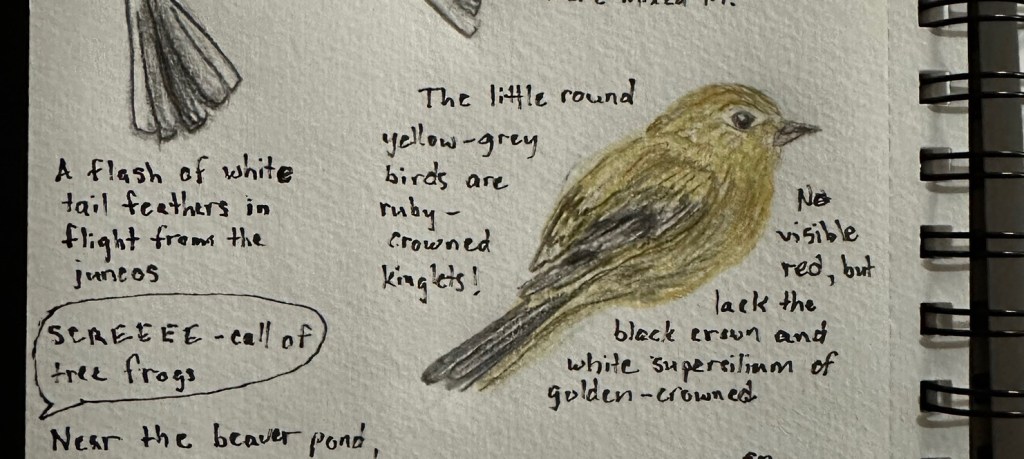 A flash of white
tail feathers in
flight from the
juncos
SCREEEE - call of
tree frogs
Near the beaver pond,
The little round
yellow-grey
birds are
ruby-
crowned
kinglets!
No
visible
red, but
lack the
black crown and
white supersilium of
golden-crowned